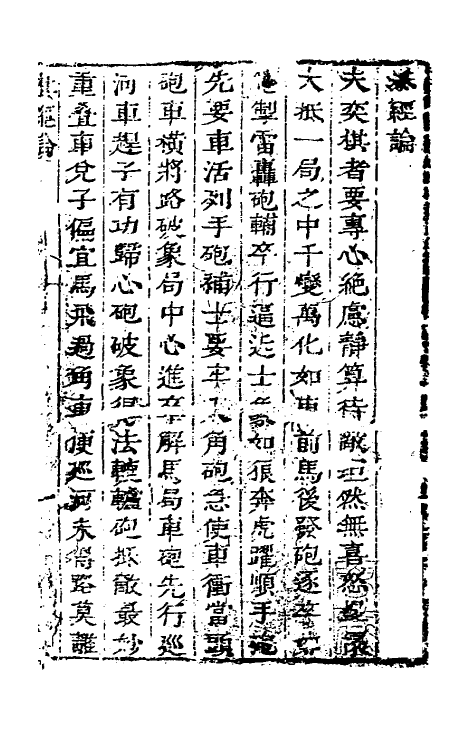 棋經論
夫奕棋者要專心絶慮靜算待敵坦然無喜怒
大抵一局之中千變萬化如車前馬後發砲逐卒
掣雷轟砲輔卒行逼近士如狼奔虎躍順手砲
先要車活列手砲補士要牢角砲急使車衝當頭
砲車橫將路破象局中心進卒解馬局車砲先行巡
河車趕子有功歸心砲破象得法轆轤砲抵敵最妙
重疊車兌子偏宜馬飛過角車便巡河未得路莫離
棋經論